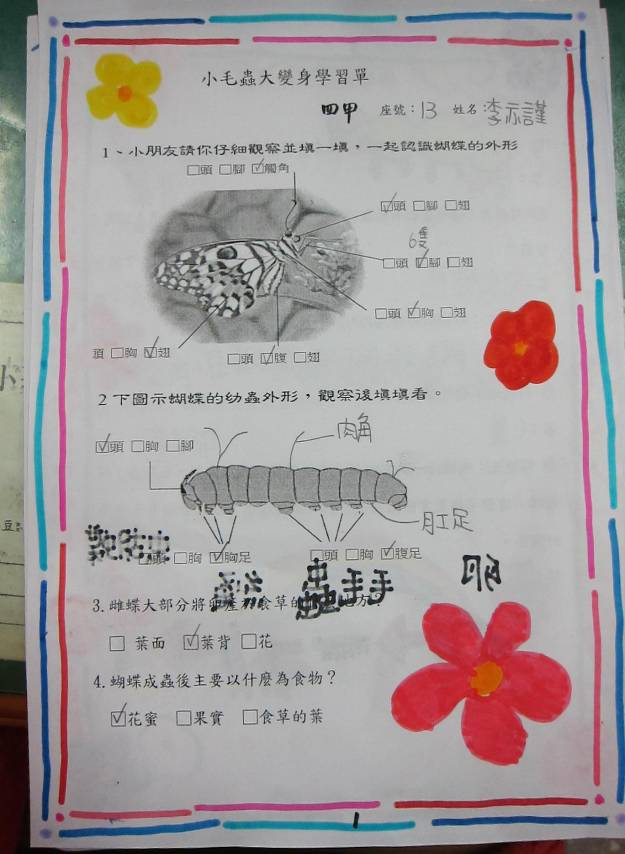 小毛蟲大變身學習單
四甲 座號：13 姓名 李示謹
1、小朋友請你仔細觀察並填一填，一起認識蝴蝶的外形
□頭 □腳 ☑觸角
☑頭 □腳 □翅
6隻
□頭 ☑腳 □翅
□頭 ☑胸 □翅
頭 □胸 ☑翅
□頭 ☑腹 □翅
2下圖示蝴蝶的幼蟲外形，觀察後填填看。
肉角
☑頭 □胸 □腳
肛足
□頭 □胸 ☑胸足
□頭 □胸 ☑腹足
卵
3.雌蝶大部分將卵產在食草的
□ 葉面 ☑葉背 □花
4.蝴蝶成蟲後主要以什麼為食物？
☑花蜜 □果實 □食草的葉
1